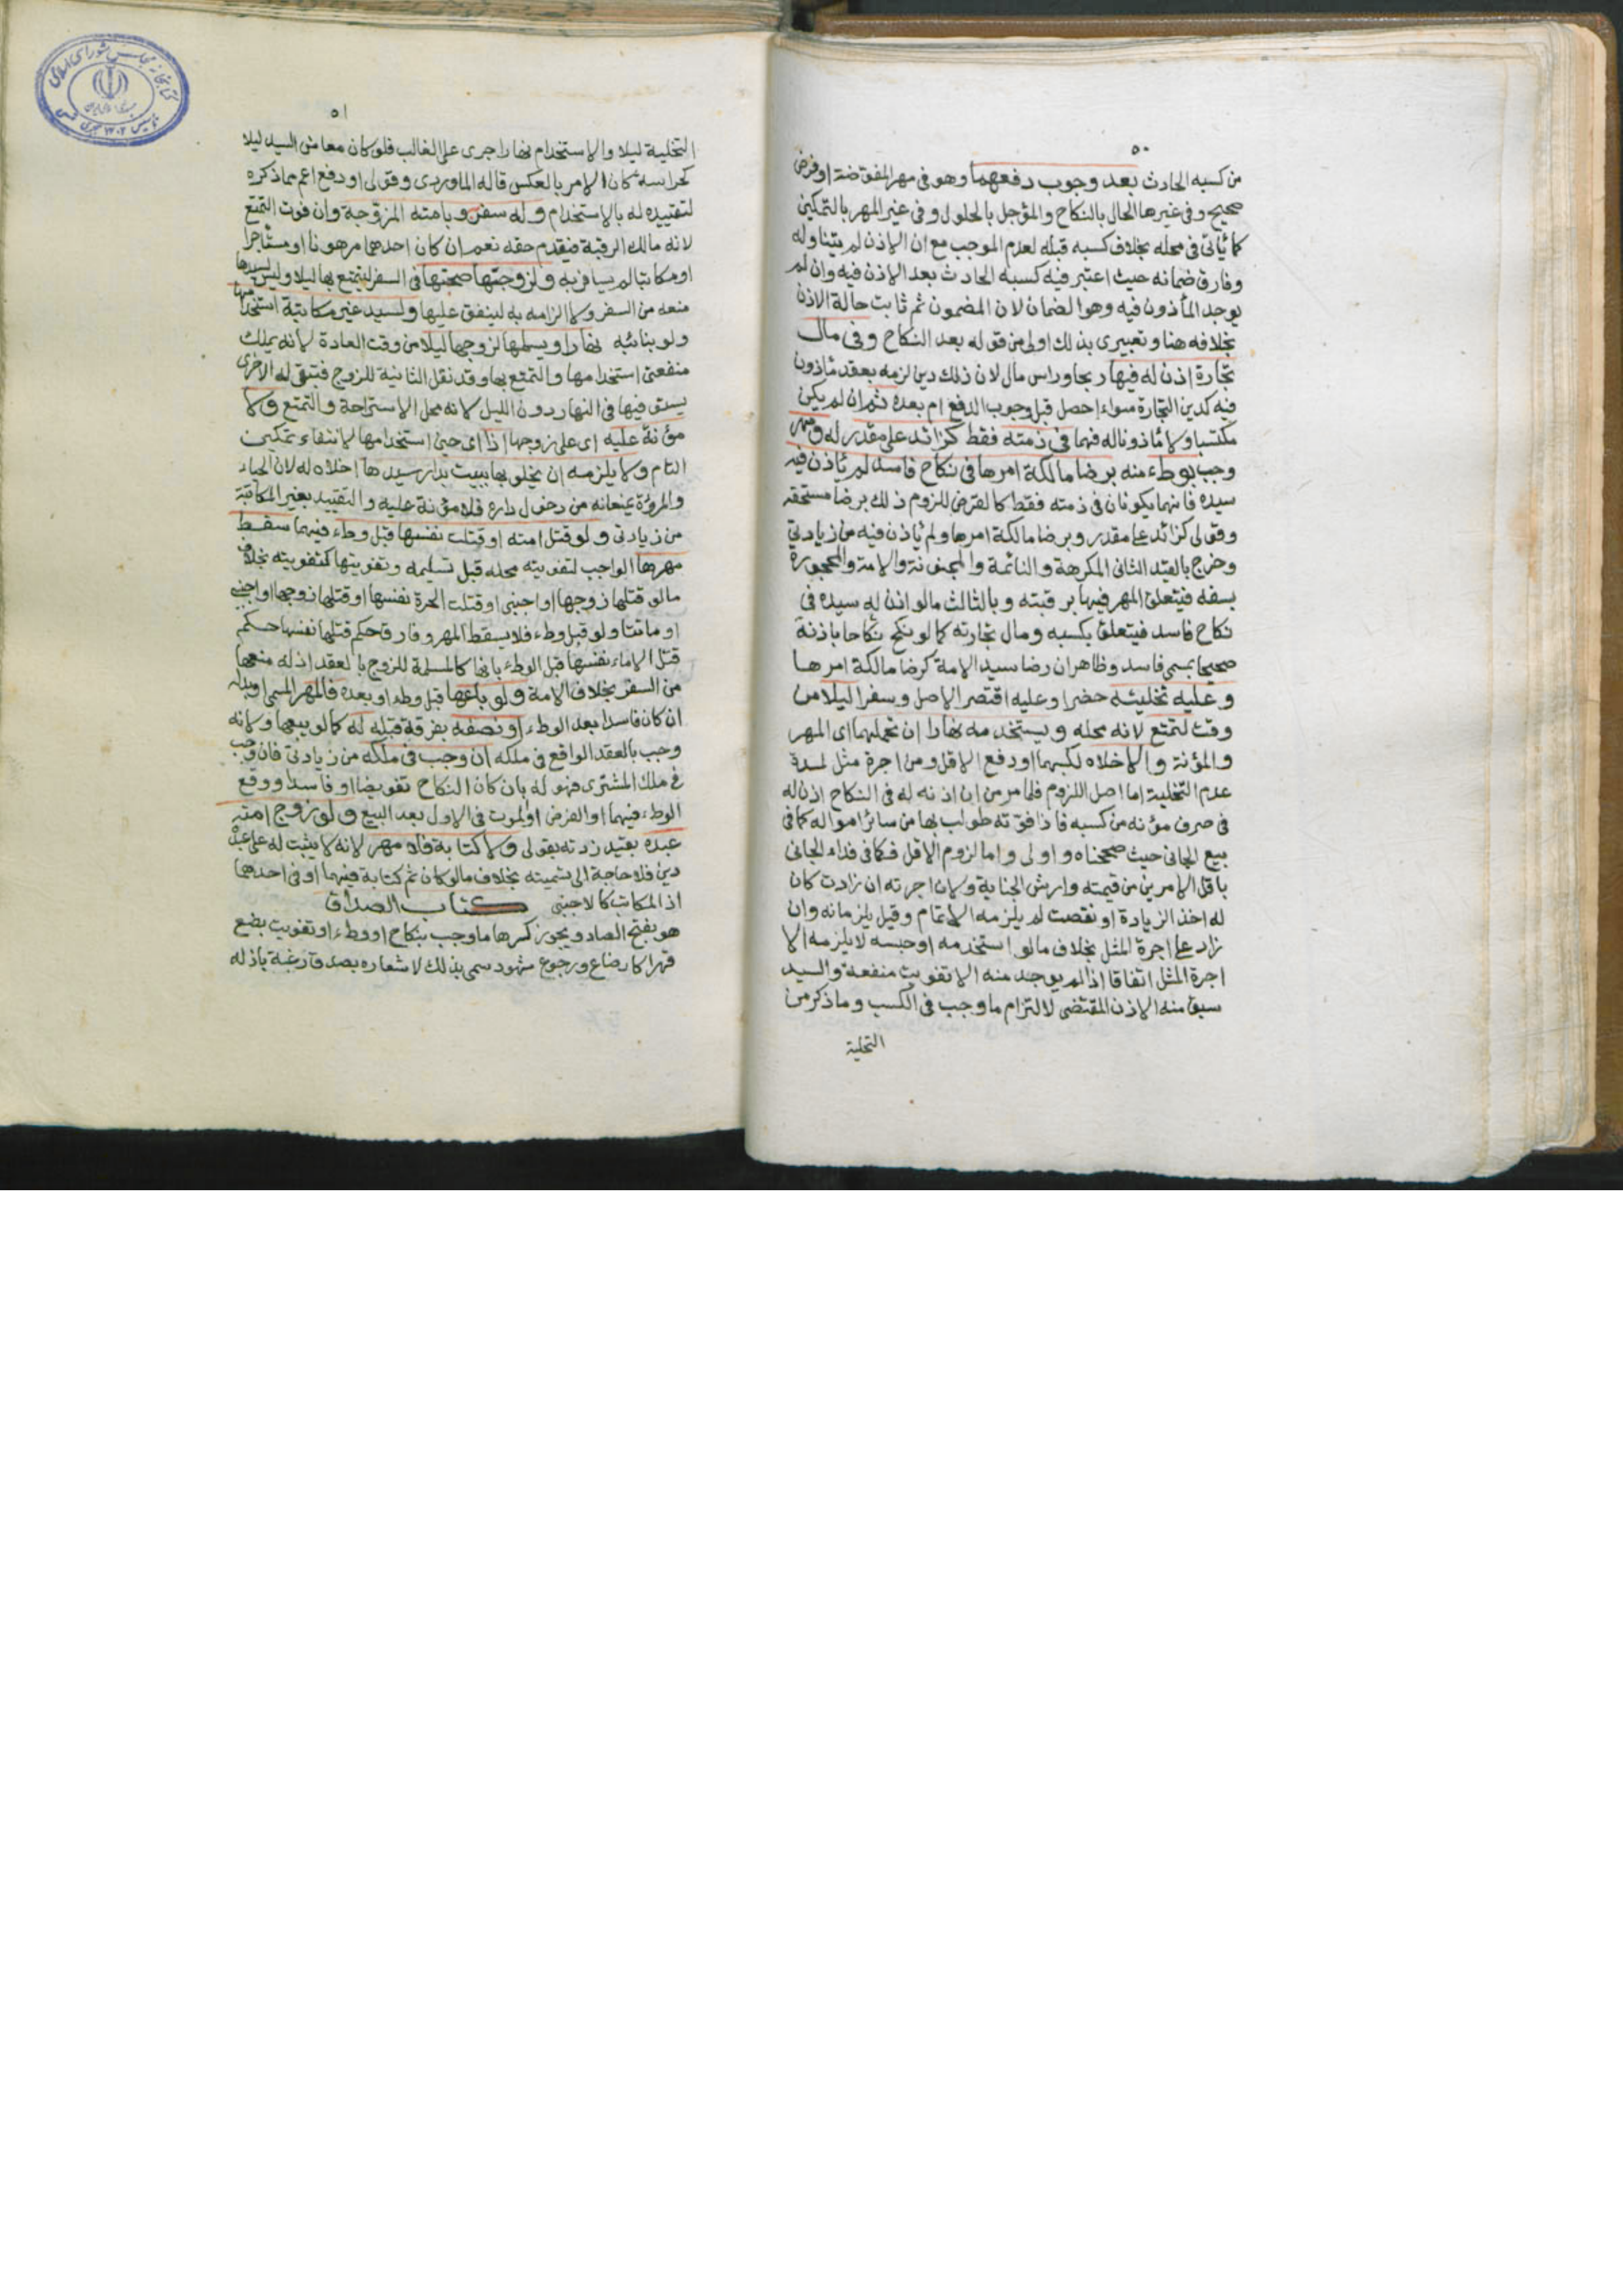 ٥٠
من كسبه الحادث بعد وجوب دفعهما وهو فى مهر المفوضة او فرض
صحيح وفى غيرها الحال بالنكاح والمؤجل بالحلول وفى غير المهر بالتمكين
كما ياتى فى محله بخلاف كسبه قبله لعدم الموجب مع ان الاذن لم يتناوله
وفارق ضمانه حيث اعتبر فيه كسبه الحادث بعد الاذن فيه وان لم
يوجد المأذون فيه وهو الضمان لان المضمون ثم ثابت حالة الاذن
بخلافه هنا وتعبيرى بذلك اولى من قوله بعد النكاح وفى مال
تجارة اذن له فيها ربحا وراس مال لان ذلك دين لزمه بعقد ماذون
فيه كدين التجارة سواء احصل قبل وجوب الدفع ام بعده ثم ان لم يكن
مكتسبا ولا ماذونا له فهما فى ذمته فقط كزائد على مقدر له ومهر
وجب بوطء منه برضا مالكة امرها فى نكاح فاسد لم ياذن فيه
سيده فانهما يكونان فى ذمته فقط كالقرض للزوم ذلك برضا مستحقه
وقولى كزائد على مقدر وبرضا مالكة امرها ولم ياذن فيه من زيادتي
وخرج بالقيد الثانى المكرهة والنائمة والمجنونة والامة والمحجورة
بسفه فيتعلق المهر فيها برقبته وبالثالث ما لو اذن له سيده فى
نكاح فاسد فيتعلق بكسبه ومال تجارته كما لو نكح نكاحا باذنه
صحيحا بمسمى فاسد وظاهر ان رضا سيد الامة كرضا مالكة امرها
وعليه تخليته حضرا وعليه اقتصر الاصل وسفرا ليلا من
وقت لتمتع لانه محله ويستخدمه نهارا ان تحملهما اى المهر
والمؤنة والا خلاه لكسبهما او دفع الاقل ومن اجرة مثل لمدة
عدم التخلية اما اصل اللزوم فلما مر من ان اذنه له فى النكاح اذن له
فى صرف مؤنه من كسبه فاذا فوته طولب بها من سائر امواله كما فى
بيع الجانى حيث صححناه واولى واما لزوم الاقل فكما فى فداء الجانى
باقل الامرين من قيمته وارش الجناية ولان اجرته ان زادت كان
له اخذ الزيادة او نقصت لم يلزمه الاتمام وقيل يلزمانه وان
زاد على اجرة المثل بخلاف ما لو استخدمه او حبسه لا يلزمه الا
اجرة المثل اتفاقا اذا لم يوجد منه الا تفويت منفعة والسيد
سبق منه الاذن المقتضى لالتزام ما وجب فى الكسب وما ذكر من
التخلية
٥١
التخلية ليلا والاستخدام نهارا جرى على الغالب فلو كان معاش السيد ليلا
كحراسة كان الامر بالعكس قاله الماوردى وقولى او دفع اعم مما ذكره
لتقييده له بالاستخدام وله سفر به وبامته المزوجة وان فوت التمتع
لانه مالك الرقبة فيقدم حقه نعم ان كان احدهما مرهونا او مستأجرا
او مكاتبا لم يسافر به ولزوجها صحبتها فى السفر ليتمتع بها ليلا وليس لسيدها
منعه من السفر ولا الزامه به لينفق عليها ولسيد غير مكاتبة استخدامها
ولو بنائبه نهارا ويسلمها لزوجها ليلا من وقت العادة لانه يملك
منفعتى استخدامها والتمتع بها وقد نقل الثانية للزوج فتبقى له الاخرى
يستوفيها فى النهار دون الليل لانه محل الاستراحة والتمتع ولا
مؤنة عليه اى على زوجها اذا اى حين استخدامها لانتفاء تمكين
التام ولا يلزمه ان يخلو بها ببيت بدار سيدها اخلاه له لان الحياء
والمروءة يمنعانه من دخول داره فلا مؤنة عليه والتقييد بغير المكاتبة
من زيادتى ولو قتل امته او قتلت نفسها قبل وطء فيهما سقط
مهرها الواجب لتفويته محله قبل تسليمه وتفويتها كتفويته بخلاف
ما لو قتلها زوجها او اجنبى او قتلت الحرة نفسها او قتلها زوجها او اجنبى
او ماتتا ولو قبل وطء فلا يسقط المهر وفارق حكم قتلها نفسها حكم
قتل الاماء نفسها قبل الوطء بانها كالمسلمة للزوج بالعقد اذ له منعها
من السفر بخلاف الامة ولو باعها قبل وطء او بعده فالمهر المسمى او بدله
ان كان فاسدا بعد الوطء او نصفه بفرقة قبله له كما لو يبعها ولانه
وجب بالعقد الواقع فى ملكه ان وجب فى ملكه من زيادتى فان وجب
فى ملك المشترى فهو له بان كان النكاح تفويضا او فاسدا ووقع
الوطء فيهما او الفرض او الموت فى الاول بعد البيع ولو زوج امته
عبده بقيد زدته بقولى ولا كتابة فلا مهر لانه لا يثبت له على عبده
دين فلا حاجة الى تسميته بخلاف ما لو كان ثم كتابة فيهما او فى احدهما
اذ المكاتب كالاجنبى كتاب الصداق
هو بفتح الصاد ويجوز كسرها ما وجب بنكاح او وطء او تفويت بضع
قهرا كارضاع ورجوع شهود سمى بذلك لاشعاره بصدق رغبة باذله